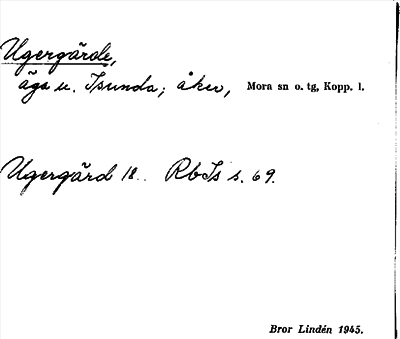 Ugergärde,
äga u. Isunda; åker, Mora sn o. tg, Kopp. l.
Ugergärd 18.. RbIs s. 69.
Bror Lindén 1945.